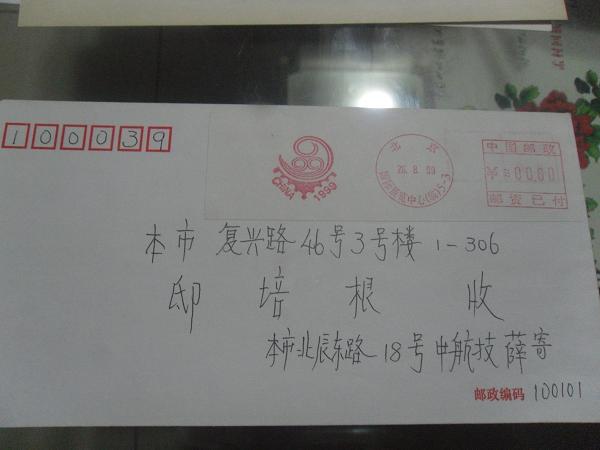 100039
CHINA 1999
北京
26.8.99
中国邮政
邮资已付
本市 复兴路46号3号楼 1-306
邸 培 根 收
本市北辰东路18号中航技 薛寄
邮政编码 100101